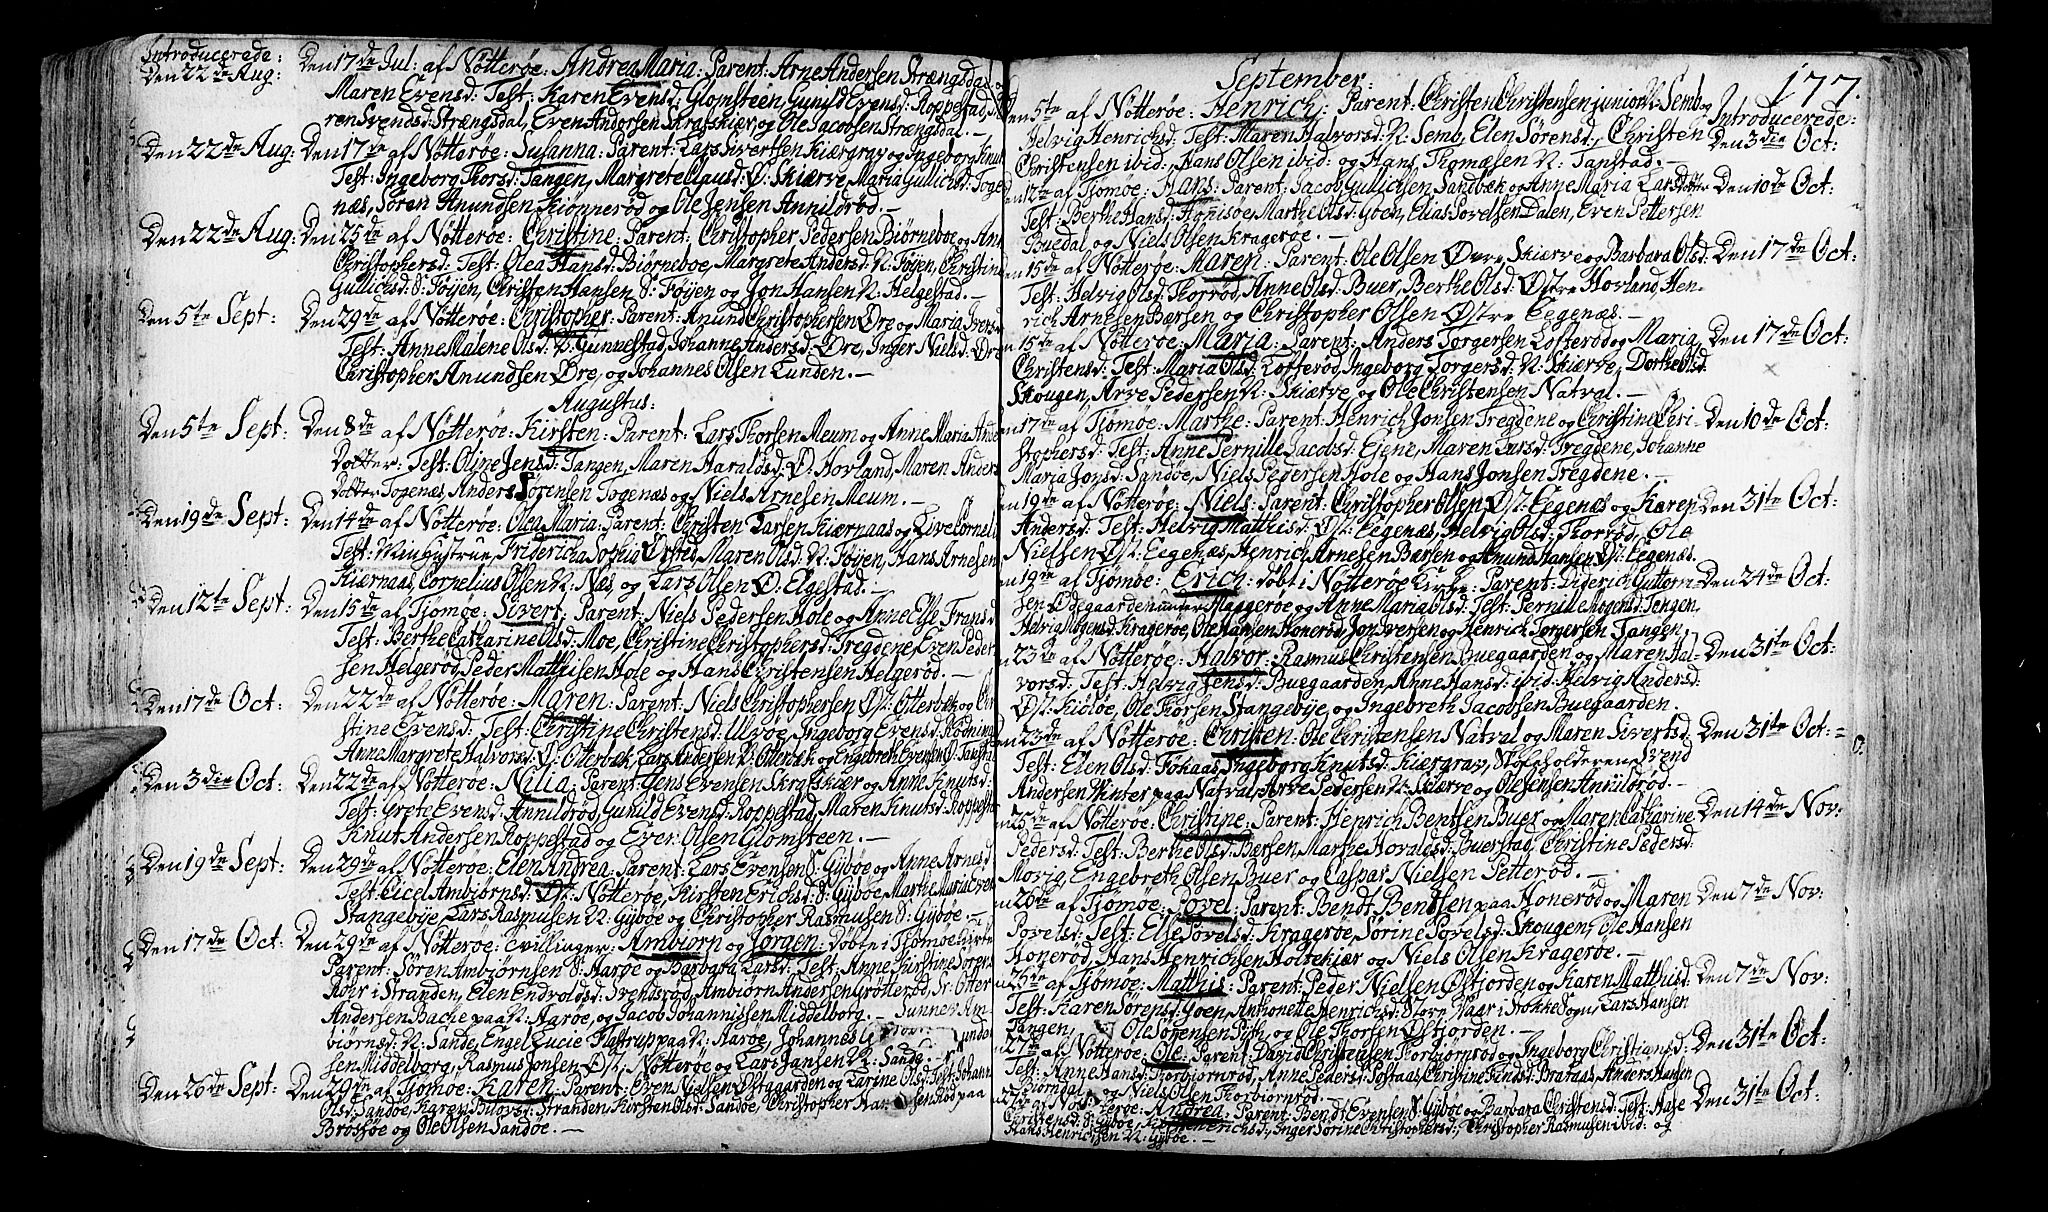 Introducerede:
Den 22de Aug: Den 17de Jul: af Nötteröe: Andrea Maria: Parent: Arne Andersen Strængsdal og
Maren Evensd: Test: Karen Evensd: Glomsteen, Gunild Evensd: Roppestad,
ren Svendsd: Strængsdal, Even Andersen Skrafskiær, og Ole Jacobsen Strængsdal. —
Den 22de Aug: Den 17de af Nötteröe: Susanna: Parent: Lars Sivertsen Kiærgrav og Ingeborg Knut
Test: Ingeborg Thorsd: Tangen, Margrete Clausd: Ø: Skiærve, Maria Gullichsd: Toge
næs, Sören Knudsen Kionneröd og Ole Jensen Annildröd. —
Den 22de Aug: Den 25de af Nötteröe: Christine: Parent: Christopher Pedersen Biörneboe og
Christophersd: Test: Olea Hansd: Biörneboe, Margrete Andersd: N: Föjen, Christine
Gullichsd: S: Föjen, Christen Hansen S: Föjen og Jon Hansen N: Helgestad. —
Den 5te Sept: Den 29de af Nötteröe: Christopher: Parent: Anund Christophersen Øre og Maria Iversd
Test: Anne Malene Olsd: N: Gunnestad, Johanne Andersd: Øre, Inger Nielsd: Øre
Christopher Anundsen Øre, og Johannes Olsen Lunden. —
Augustus:
Den 5te Sept: Den 8de af Nötteröe: Kirsten: Parent: Lars Thorsen Meum og Anne Maria Ande
Dotter: Test: Oline Jensd: Tangen, Maren Haraldsd: Ø: Hovland, Maren Anders
Dotter Togenæs, Anders Sörensen Togenæs og Niels Arnesen Meum. —
Den 19de Sept: Den 14de af Nötteröe: Olea Maria: Parent: Christen Larsen Kiærnaas og Live Cornel
Test: Min Hustrue, Fridericha Sophia Ørsted, Maren Olsd: N: Föjen, Hans Arnesen
Kiærnaas, Cornelius Olsen N: Næs og Lars Olsen Ø: Elgestad. —
Den 12te Sept: Den 15de af Tjömöe: Sivert: Parent: Niels Pedersen Hole og Anne Else Fransd
Test: Berthe Catharine Olsd: Moe, Christine Christophersd: Tregdene Even Peder
sen Helgeröd, Peder Matthisen Hole og Hans Christensen Helgeröd. —
Den 17de Oct: Den 22de af Nötteröe: Maren: Parent: Niels Christophersen Øst: Otterbæk og Chri
stine Evensd: Test: Christine Christensd: Ulvöe, Ingeborg Evensd: Rödning
Anne Margrete Halvorsd: Ø: Otterbæk, Lars Andersen Ø: Otterbæk og Engebreth Evensen
Den 3die Oct: Den 22de af Nötteröe: Nilia: Parent: Jens Evensen Skrafskiær og Anne Knutsd:
Test: Grete Evensd: Annildröd, Gunild Evensd: Roppestad, Maren Knutsd: Roppesta
Knut Andersen Roppestad og Even Olsen Glomsteen. —
Den 19de Sept: Den 29de af Nötteröe: Elen Andrea: Parent: Lars Evensen S: Gyböe og Anne Arnesd
Test: Cicel Ambiörnsd: Øst: Nötteröe, Kirsten Erichsd: S: Gyböe, Marthe Maria Even
Stangebye, Lars Rasmusen N: Gyböe og Christopher Rasmusen S: Gyböe. —
Den 17de Oct: Den 29de af Nötteröe: Tvillinger: Ambiörn og Jörgen: Döbte i Tjömöe Kirke
Parent: Sören Ambiörnsen S: Aaröe og Barbara Larsd: Test: Anne Kirstine Sörens
Röir i Stranden, Elen Endvoldsd: Svendsröd, Ambiörn Andersen Grötteröd, Sr: Otter
Andersen Bache paa N: Aaröe, og Jacob Johannissen Middelborg. — Sunnev: Am
biörnsd: N: Sande, Engel Lucie Flastrup paa N: Aaröe, Johannes
sen Middelborg, Rasmus Jonsen Øst: Nötteröe og Lars Jansen N: Sande. —
Den 26de Sept: Den 29de af Tjömöe: Karen: Parent: Even Nielsen Østgaarden og Karine Olsd: Test: Johann
Olsd: Sandöe, Karen Biövsd: Stranden, Kirsten Olsd: Sandöe, Christopher Han sen Röd paa
Brösöe og Ole Olsen Sandöe. —
September:
177.
5te af Nötteröe: Henrich: Parent: Christen Christensen junior N: Semb og Introducerede:
Helvig Henrichsd: Test: Maren Halvorsd: N: Semb, Elen Sörensd:, Christen Den 3die Oct:
Christensen ibid:, Hans Olsen ibid: og Hans Thomæsen N: Tanstad. —
12te af Tjömöe: Hans: Parent: Jacob Gullichsen Sandbæk og Anne Maria Larsdotter Den 10de Oct:
Test: Berthe Hansd: Honisöe, Marthe Olsd: Goen, Elias Povelsen Dalen, Even Pettersen
Buedal og Niels Olsen Krageröe. —
15de af Nötteröe: Maren: Parent: Ole Olsen Øvre Skierve og Barbara Olsd: Den 17de Oct:
Test: Helvig Olsd: Thorröd, Anne Olsd: Buer, Berthe Olsd: Østre Hovland, Hen-
rich Arnesen Bærsen og Christopher Olsen Østre Eegenæs. —
15de af Nötteröe: Maria: Parent: Anders Torgersen Lofteröd og Maria Den 17de Oct:
Christensd: Test: Maria Olsd: Lofteröd, Ingeborg Torgersd: N: Skiærve, Dorthe Olsd:
Skougen, Arve Pedersen N: Skiærve, og Ole Christensen Natval. —
17de af Tjömöe: Marthe: Parent: Henrich Jonsen Tregdene og Christine Chri- Den 10de Oct:
stophersd: Test: Anne Pernille Jacobsd: Ejene, Maren Larsd: Tregdene, Johanne
Maria Jonsd: Sandöe, Niels Pedersen Hole og Hans Jonsen Tregdene. —
19de af Nötteröe: Niels: Parent: Christopher Olsen Øst: Eegenæs og Karen Den 31te Oct:
Andersd: Test: Helvig Matthisd: Øst: Eegenæs, Helvig Olsd: Thorröd, Ole
Nielsen Øst: Eegenæs, Henrich Arnesen Bærsen og Anund Hansen Øst: Eegenæs.
19de af Tjömöe: Erich: döbt i Nötteröe Kirke: Parent: Diderich Guttorm Den 24de Oct:
sen Ødegaarden under Maggeröe og Anne Maria Olsd: Test: Pernille Mogensd: Tangen,
Helvig Mogensd: Krageröe, Ole Hansen Honeröd, Jon Iversen og Henrich Torgersen Tangen,
23de af Nötteröe: Halvor: Rasmus Christensen Buegaarden og Maren Hal- Den 31te Oct:
vorsd: Test: Helvig Jensd: Buegaarden, Anne Hansd: ibid: Helvig Andersd:
Øst: Kiölöe, Ole Thorsen Stangebye, og Ingebreth Jacobsen Buegaarden.
23de af Nötteröe: Christen: Ole Christensen Natval og Maren Sivertsd: Den 31te Oct:
Test: Elen Olsd: Fokaas, Ingeborg Knutsd: Kiærgrav, Skoleholderen Svend
Andersen Winter paa Natval, Arve Pedersen N: Skiærve og Ole Jensen Annildröd. —
25de af Nötteröe: Christine: Parent: Henrich Bentsen Buer og Maren Catharine Den 14de Nov:
Pedersd: Test: Berthe Olsd: Bærsen, Marthe Horaldsd: Buerstad, Christine Pedersd:
Movig, Engebreth Olsen Buer og Caspar Nielsen Petteröd. —
26de af Tjömöe: Povel: Parent: Bendt Bentsen paa Honeröd og Maren Den 7de Nov:
Povelsd: Test: Else Povelsd: Krageröe, Sörine Povelsd: Skougen, Ole Hansen
Honeröd, Hans Henrichsen Holtekiær og Niels Olsen Krageröe. —
26de af Tjömöe: Matthis: Parent: Peder Nielsen Østjorden og Karen Matthisd: Den 7de Nov:
Test: Karen Sörensd: Goen, Anthonette Henrichsd: Store Vaar i Stokke Sogn, Lars Hansen
Tangen, Ole Sörensen Sith og Ole Thorsen Østjorden. —
27de af Nötteröe: Ole: Parent: David Christensen Thorbiörnröd og Ingeborg Christiansd: Den 31te Oct:
Test: Anne Hansd: Thorbiörnröd, Anne Pedersd: Fostaas, Christine Findsd: Brataas, Anders Hansen
Biörndal og Niels Olsen Thorbiörnröd. —
27de af Nötteröe: Andrea: Parent: Bendt Evensen S: Gyböe og Barbara Christensd: Test: Aase Den 31te Oct:
Christensd: S: Gyböe, Henrichsd:, Inger Sörine Christophersd:, Christopher Rasmusen ibid: og
Hans Henrichsen N: Gyböe. —